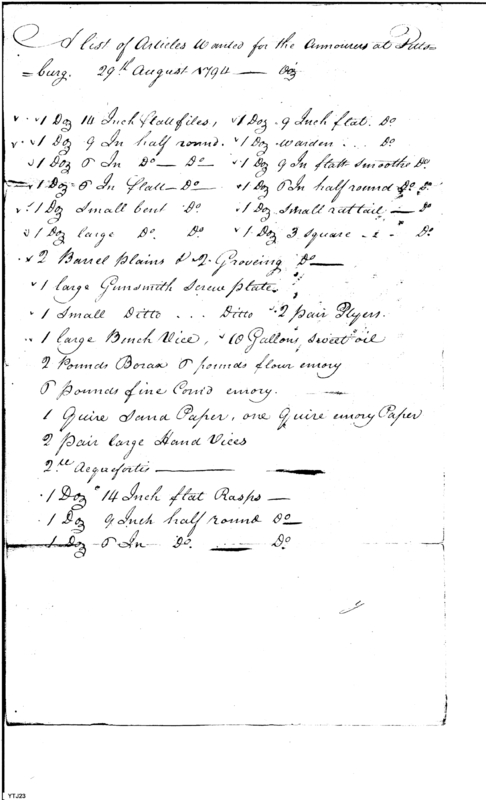 A list of Articles Wanted for the Armourers at Pitts=
=burg. 29th August 1794 — Viz
1 Doz 14 Inch flatt files, 1 Doz. 9 Inch flat. Do
1 Doz 9 In half round. 1 Doz warden . . . Do
1 Doz 6 In Do — Do — 1 Doz 9 In flatt smooths Do
1 Doz 6 In flatt — Do — 1 Doz 6 In half round Do Do
1 Doz Small bent Do. 1 Doz small rattail — Do
1 Doz large Do. Do. 1 Doz 3 square - - Do
2 Barrel Plains & 2 Groveing Do —
1 large Gunsmith Screw Plate
1 Small Ditto . . . Ditto 2 pair Plyers.
1 large Bench Vice, 10 Gallons sweet oil
2 Pounds Borax 6 pounds flour emory
6 pounds fine Corn'd emory.
1 Quire Sand Paper, one Quire emory Paper
2 pair large Hand Vices
2 Acquefortis —
1 Doz 14 Inch flat Rasps —
1 Doz 9 Inch half round Do —
1 Doz 6 In Do. — Do
YTJ23